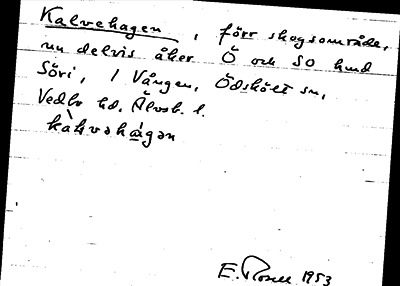 Kalvehagen, förr skogsområde,
nu delvis åker Ö och SO kund
Söri, 1 Vången, Ödskölt sn,
Vedbo hd. Älvsb. l.
kàlvəhágən
E. Rosell 1953